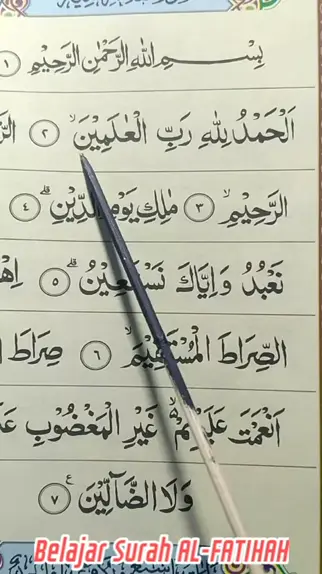 بِسْمِ اللهِ الرَّحْمٰنِ الرَّحِيْمِ ١
اَلْحَمْدُ لِلّٰهِ رَبِّ الْعٰلَمِيْنَۙ ٢ الرَّ
الرَّحِيْمِۙ ٣ مٰلِكِ يَوْمِ الدِّيْنِۗ ٤
نَعْبُدُ وَاِيَّاكَ نَسْتَعِيْنُۗ ٥ اِهْ
الصِّرَاطَ الْمُسْتَقِيْمَۙ ٦ صِرَاطَ ا
اَنْعَمْتَ عَلَيْهِمْ ەۙ غَيْرِ الْمَغْضُوْبِ عَ
وَلَا الضَّاۤلِّيْنَ ࣖ ٧
Belajar Surah AL-FATIHAH